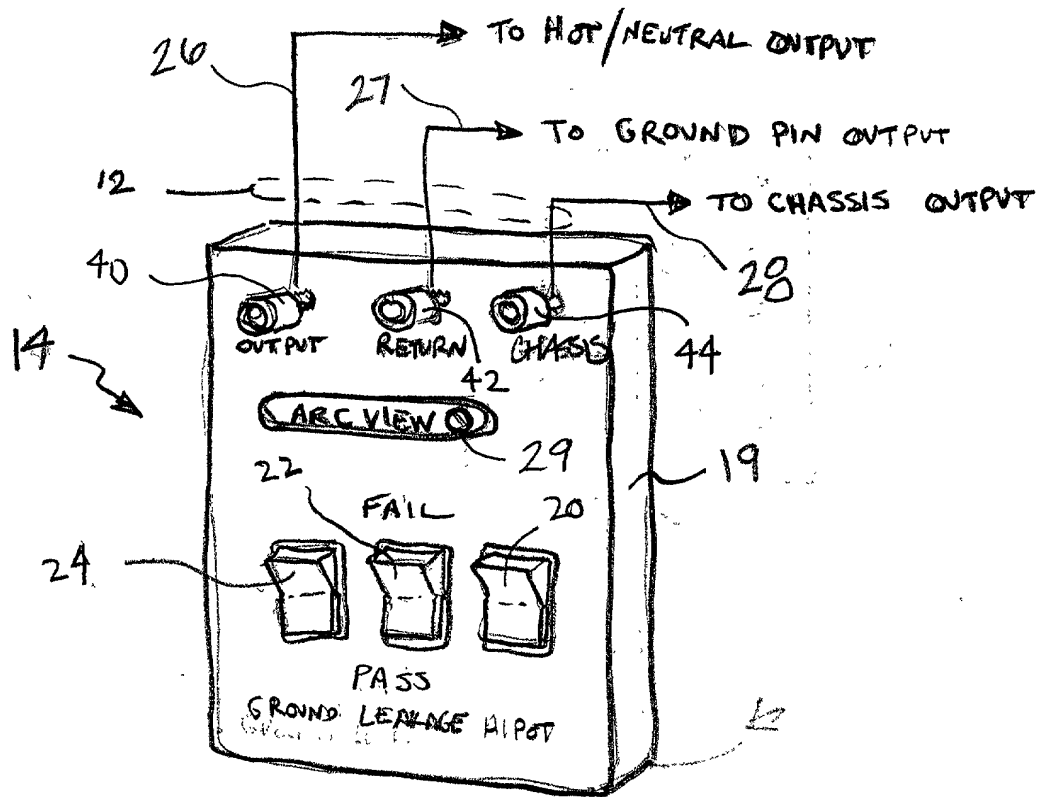 26
TO HOT/NEUTRAL OUTPUT
27
TO GROUND PIN OUTPUT
12
TO CHASSIS OUTPUT
40
28
14
OUTPUT RETURN CHASSIS
42
44
ARC VIEW
29
19
22
FAIL
20
24
PASS
GROUND LEAKAGE HIPOT